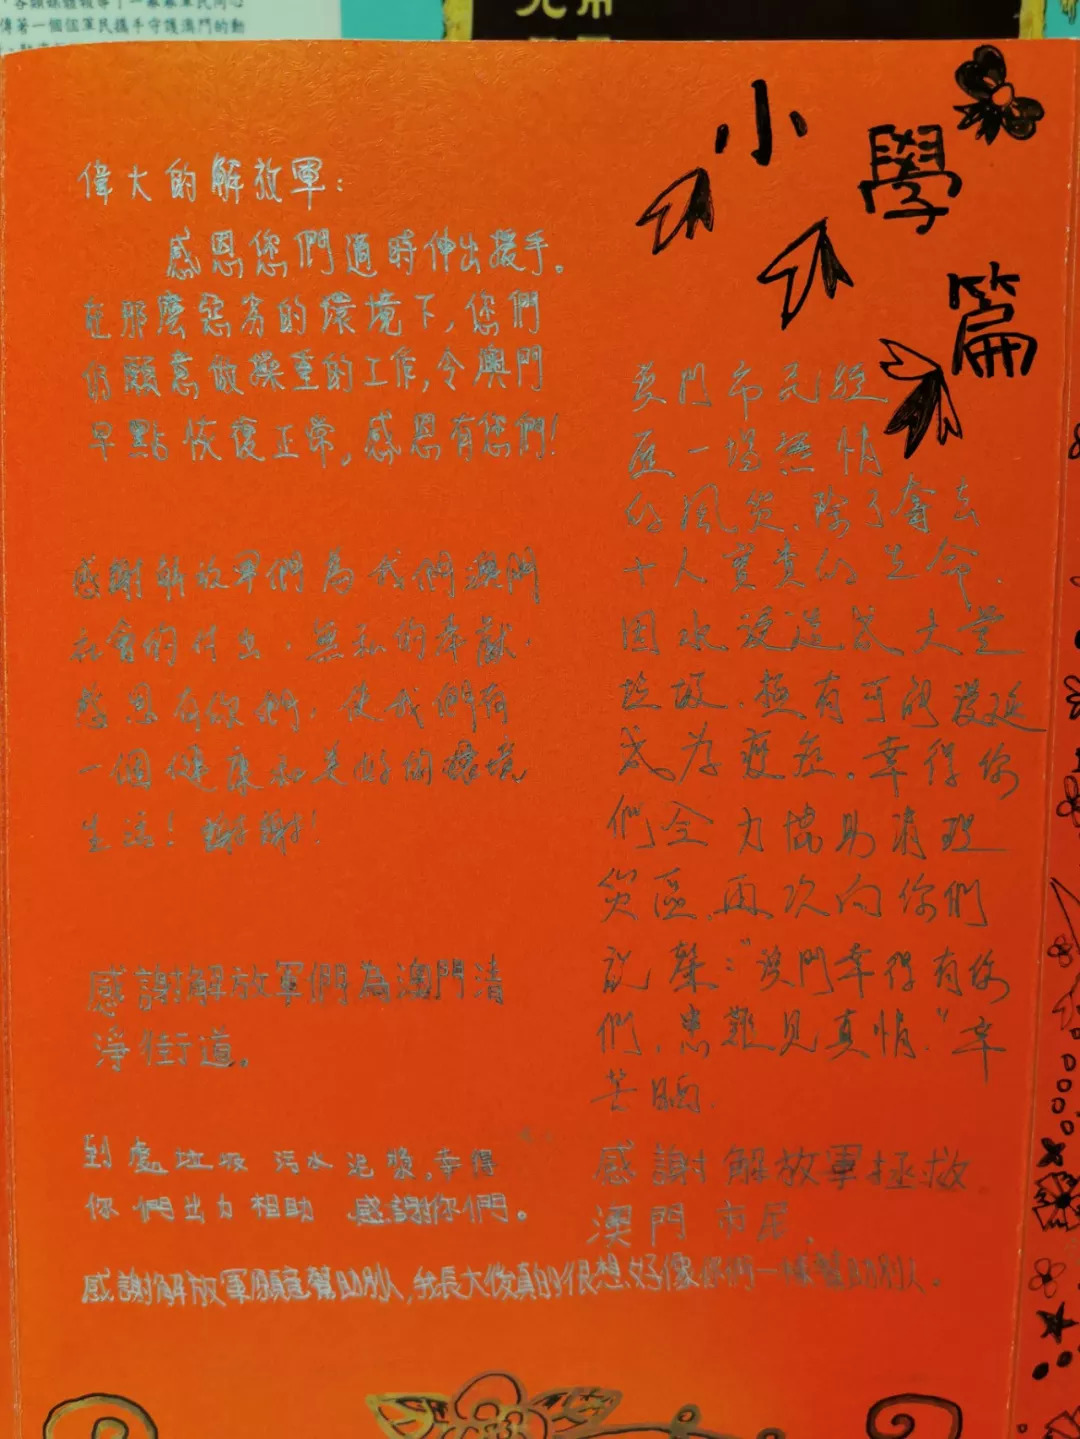 各類媒體報導了一幕幕軍民同心
傳著一個個軍民攜手守護澳門的動
小
學
篇
偉大的解放軍：
感恩您們適時伸出援手。
在那麼惡劣的環境下，您們
仍願意做操重的工作，令澳門
早點恢復正常。感恩有您們！
感謝解放軍們為我們澳門
社會的付出，無私的奉獻，
感恩有你們，使我們有
一個健康和美好的環境
生活！謝謝！
感謝解放軍們為澳門清
淨街道。
到處垃圾 污水泥漿，幸得
你們出力相助 感謝你們。
澳門市民經
歷一場無情
的風災，除了奪去
十人寶貴的生命，
因水浸造成大量
垃圾，極有可能蔓延
成為疫症，幸得你
們全力協助清理
災區，再次向你們
說聲："澳門幸得有你
們，患難見真情。"辛
苦晒。
感謝解放軍拯救
澳門市居，
感謝解放軍願意幫助別人，我長大後真的很想好像你們一樣幫助別人。